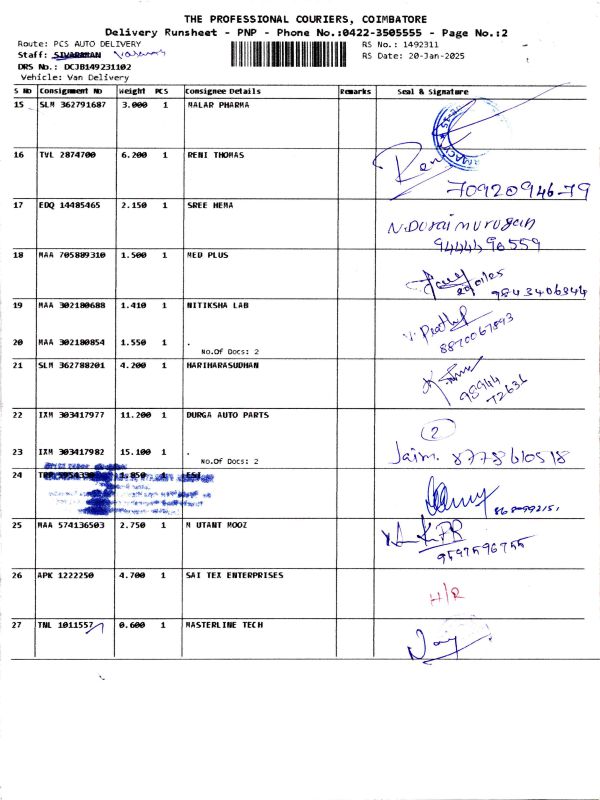 THE PROFESSIONAL COURIERS, COIMBATORE
Delivery Runsheet - PNP - Phone No.:0422-3505555 - Page No.:2
Route: PCS AUTO DELIVERY
RS No.: 1492311
Staff: SIVARAMAN
RS Date: 20-Jan-2025
DRS No.: DCJB149231102
Vehicle: Van Delivery
S No Consignment No Weight PCS Consignee Details Remarks Seal & Signature
15 SLM 362791687 3.000 1 MALAR PHARMA
16 TVL 2874700 6.200 1 RENI THOMAS
7092094679
17 EDQ 14485465 2.150 1 SREE HEMA N.Duraimurugan
9444496559
18 MAA 705889310 1.500 1 MED PLUS
9843406844
19 MAA 302180688 1.410 1 NITIKSHA LAB
8870067893
20 MAA 302180854 1.550 1 .
No.Of Docs: 2
21 SLM 362788201 4.200 1 HARIHARASUDHAN
98944
72631
22 IXM 303417977 11.200 1 DURGA AUTO PARTS
2
23 IXM 303417982 15.100 1 . Jaim. 8778610518
No.Of Docs: 2
24 1.850 1 ESI
25 MAA 574136503 2.750 1 M UTANT MOOZ
9597596755
26 APK 1222250 4.700 1 SAI TEX ENTERPRISES H/R
27 TNL 1011557 0.600 1 MASTERLINE TECH